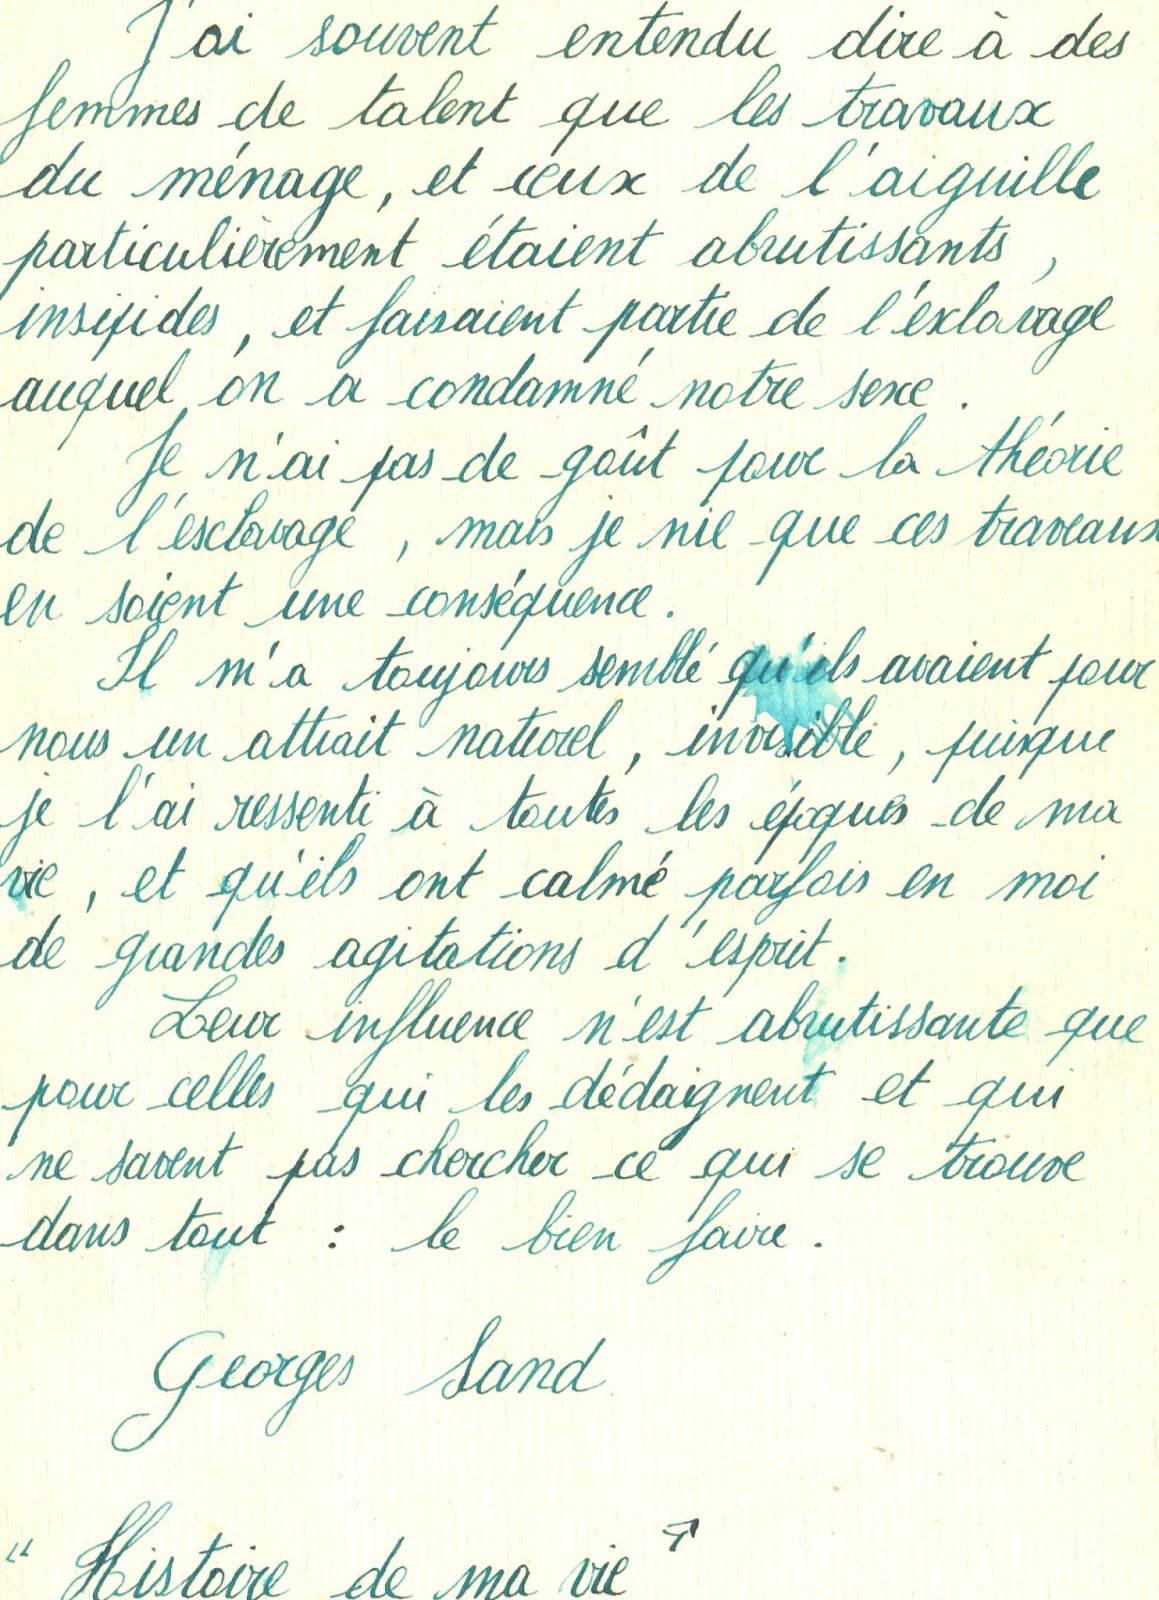 J'ai souvent entendu dire à des
femmes de talent que les travaux
du ménage, et ceux de l'aiguille
particulièrement étaient abrutissants,
insipides, et faisaient partie de l'exclavage
auquel on a condamné notre sexe.
Je n'ai pas de goût pour la théorie
de l'esclavage, mais je nie que ces traveaux
en soient une conséquence.
Il m'a toujours semblé qu'ils avaient pour
nous un attrait naturel, invisible, puisque
je l'ai ressenti à toutes les époques de ma
vie, et qu'ils ont calmé parfois en moi
de grandes agitations d'esprit.
Leur influence n'est abrutissante que
pour celles qui les dédaignent et qui
ne savent pas chercher ce qui se trouve
dans tout : le bien faire.
Georges Sand
"Histoire de ma vie"